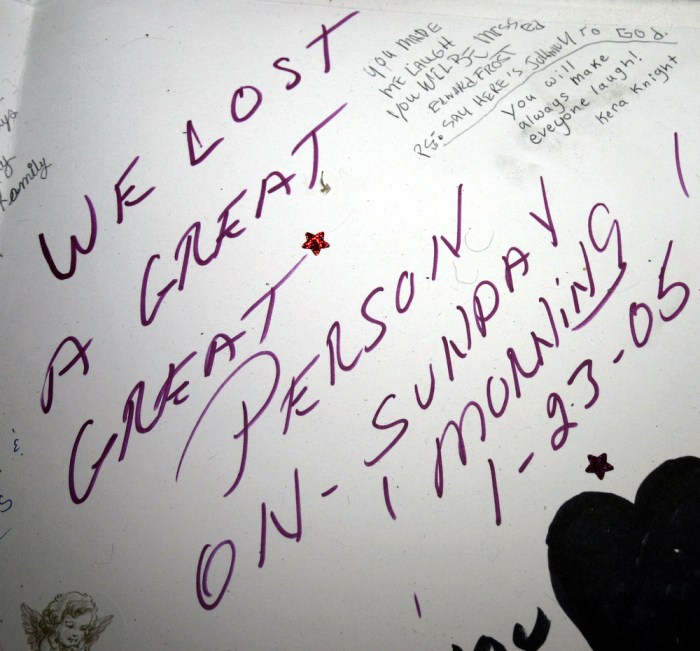 WE LOST
A GREAT
GREAT PERSON
ON-SUNDAY
MORNiNG
1-23-05
YOU MADE
ME LAUGH
YOU WILL BE MISSED
EDWARD FROST
PS: SAY HERE'S JOHNNY TO GOD.
You will
always make
eveyone laugh!
Kera Knight
family